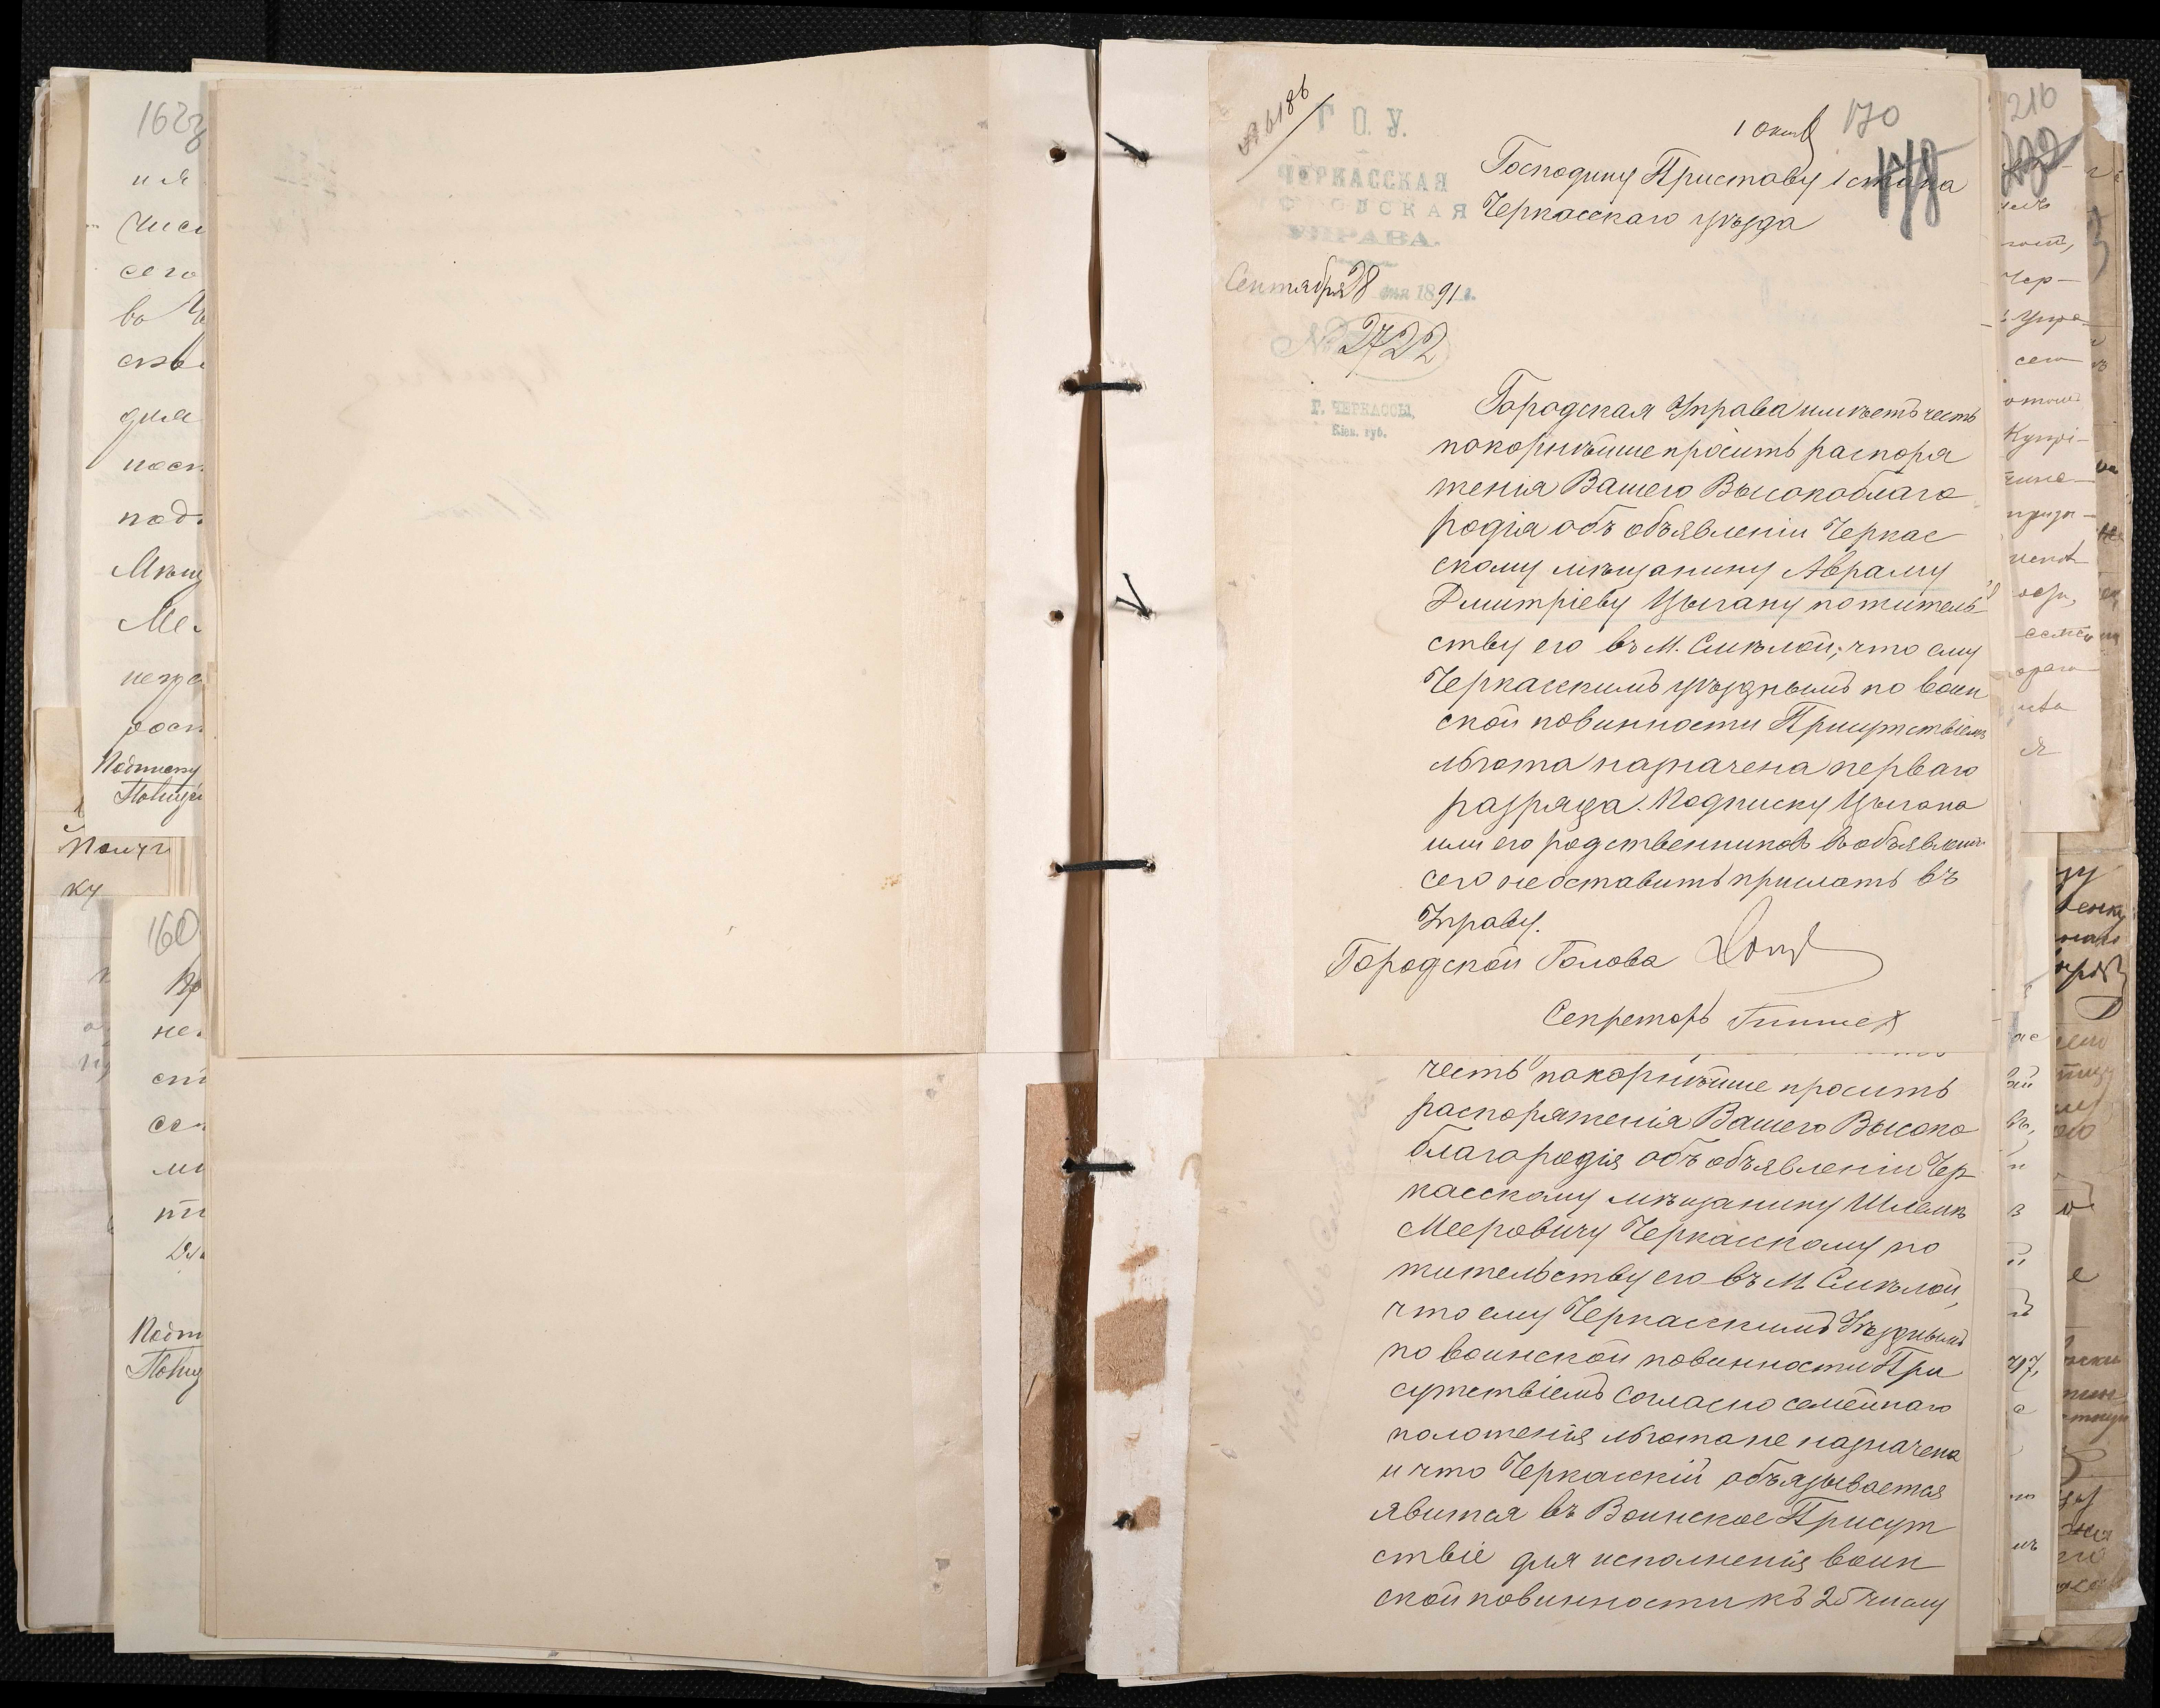 162
ния
числ
сего
во
для
под
Мѣщ
Ме
Подписку
Полиц
ку
160
не
Полиц
№ 6186
Г. О. У.
ЧЕРКАССКАЯ
ГОРОДСКАЯ
УПРАВА.
Сентября 28 дня 1891 г.
№ 2722
Г. ЧЕРКАССЫ,
Кіев. губ.
1 октяб
170
178
Господину Приставу 1 стана
Черкасскаго уѣзда
Городская Управа имѣетъ честь
покорнѣйше просить распоря
женія Вашего Высокоблаго
родія объ объявленіи Черкас
скому мѣщанину Авраму
Дмитріеву Цыгану по житель
ству его въ М. Смѣлой, что ему
Черкасскимъ уѣзднымъ по воин
ской повинности Присутствіемъ
льгота назначена перваго
разряда. Подписку Цыгана
или его родственниковъ въ объявленіи
сего не оставить прислать въ
Управу.
Городской Голова
Секретарь
честь покорнѣйше просить
распоряженія Вашего Высоко
благородія объ объявленіи Чер
касскому мѣщанину Шлемѣ
Мееровичу Черкасскому по
жительству его въ М Смѣлой,
что ему Черкасскимъ Уѣзднымъ
по воинской повинности При
сутствіемъ согласно семейнаго
положенія льгота не назначена
и что Черкасскій объязывается
явится въ Воинское Присут
ствіе для исполненія воин
ской повинности къ 25 числу
210
Чер-
сего